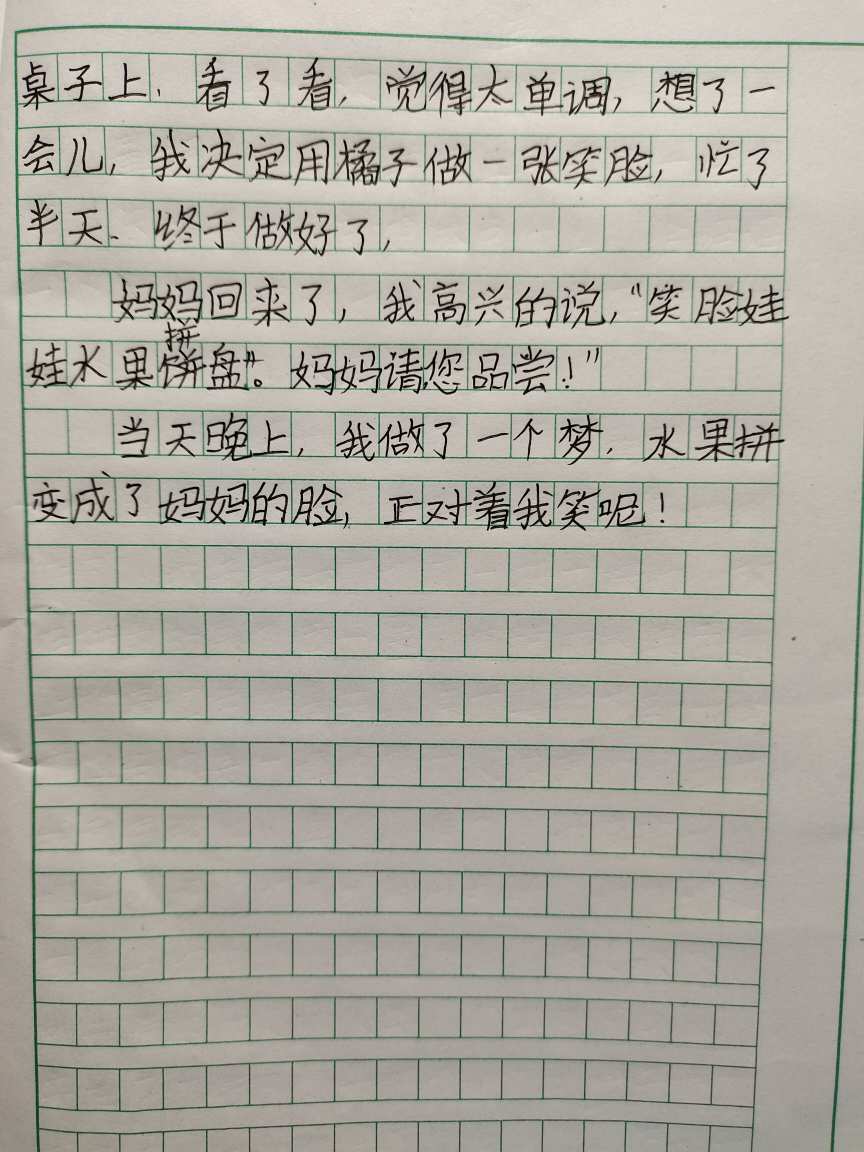 桌子上，看了看，觉得太单调，想了一
会儿，我决定用橘子做一张笑脸，忙了
半天、终于做好了，
妈妈回来了，我高兴的说，“笑脸娃
拼
娃水果饼盘”。妈妈请您品尝！”
当天晚上，我做了一个梦，水果拼
变成了妈妈的脸，正对着我笑呢！